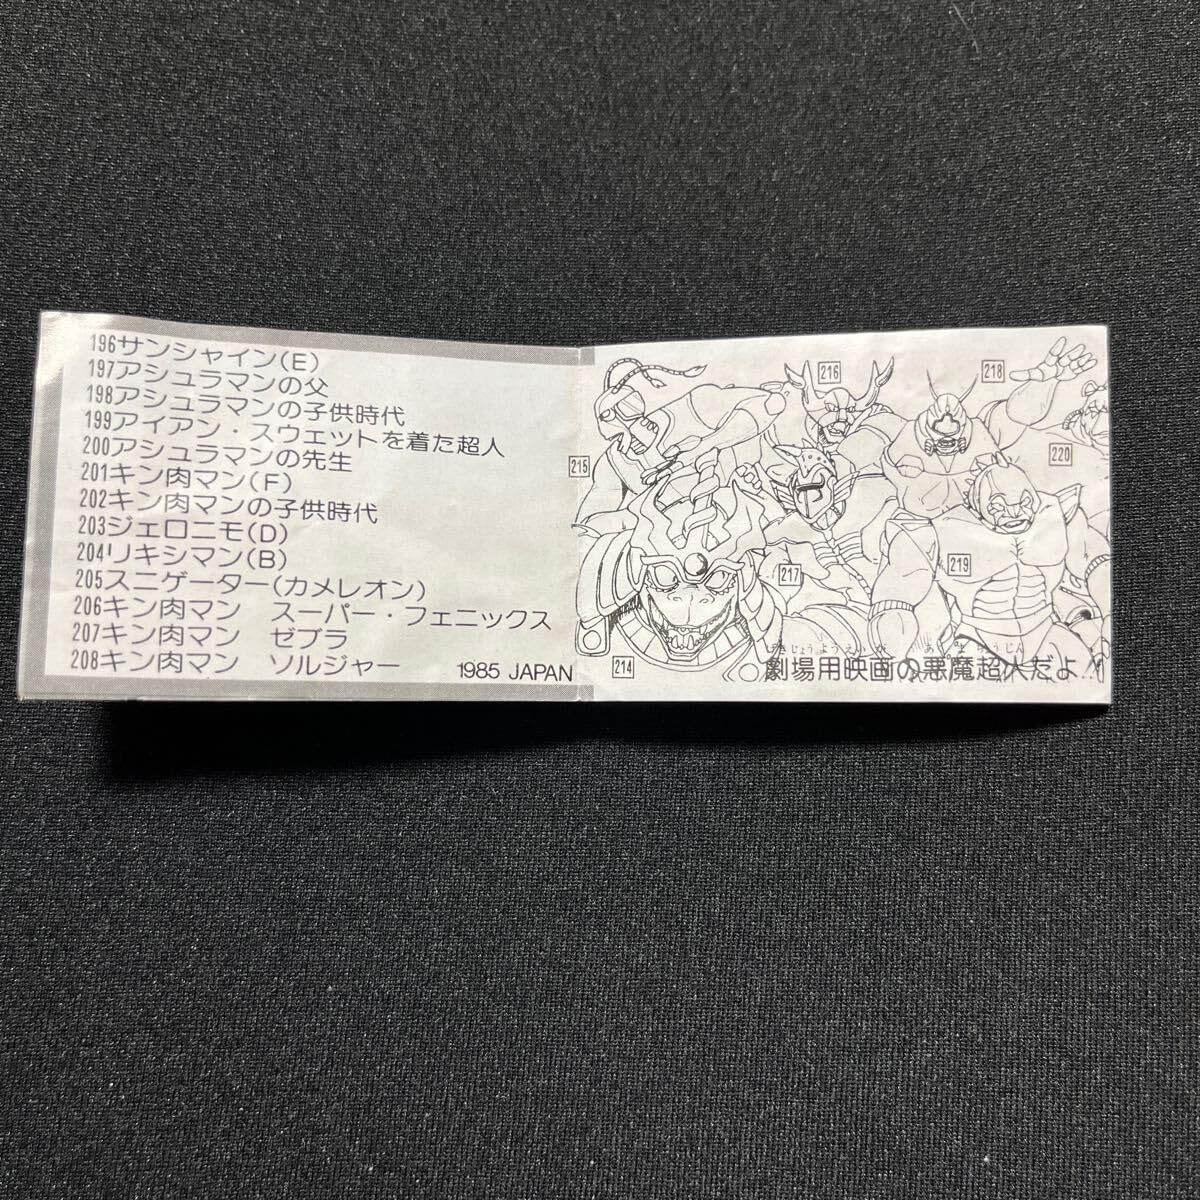 196サンシャイン(E)
197アシュラマンの父
198アシュラマンの子供時代
199アイアン・スウェットを着た超人
200アシュラマンの先生
201キン肉マン(F)
202キン肉マンの子供時代
203ジェロニモ(D)
204リキシマン(B)
205スニゲーター(カメレオン)
206キン肉マン　スーパー・フェニックス
207キン肉マン　ゼブラ
208キン肉マン　ソルジャー
1985 JAPAN
216
218
215
220
217
219
214
げきじょうようえいが　あくまちょうじん
劇場用映画の悪魔超人だよ!!